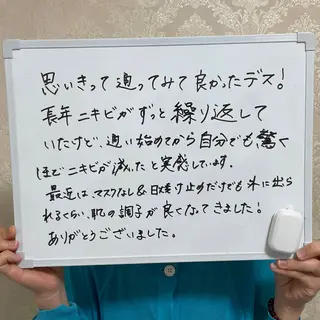 思いきって通ってみて良かったデス!
長年ニキビがずっと繰り返して
いたけど、通い始めてから自分でも驚く
ほどニキビが減ったと実感しています。
最近は、マスクなし&日焼け止めだけでも外に出ら
れるくらい、肌の調子が良くなってきました!
ありがとうございました。